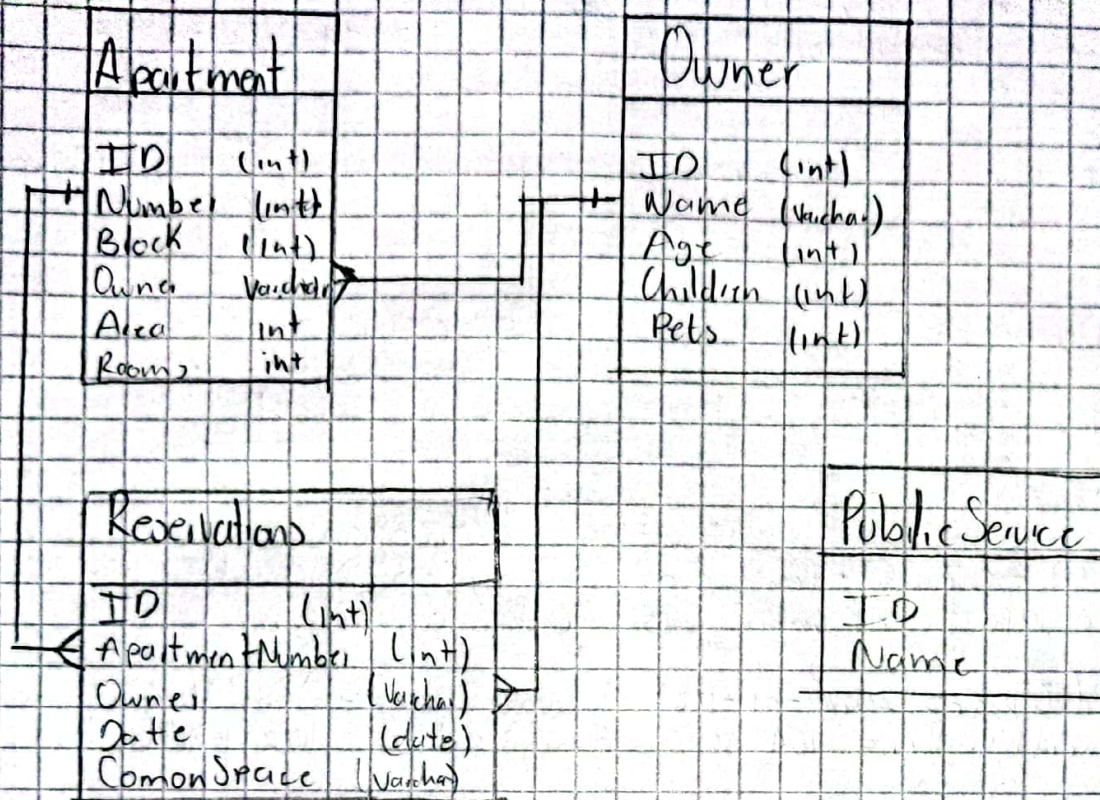 Apartment
ID (int)
Number (int)
Block (int)
Owner Varchar
Area int
Rooms int
Owner
ID (int)
Name (Varchar)
Age (int)
Children (int)
Pets (int)
Reservations
ID (int)
ApartmentNumber (int)
Owner (Varchar)
Date (date)
ComonSpace (Varchar)
Public Service
ID
Name